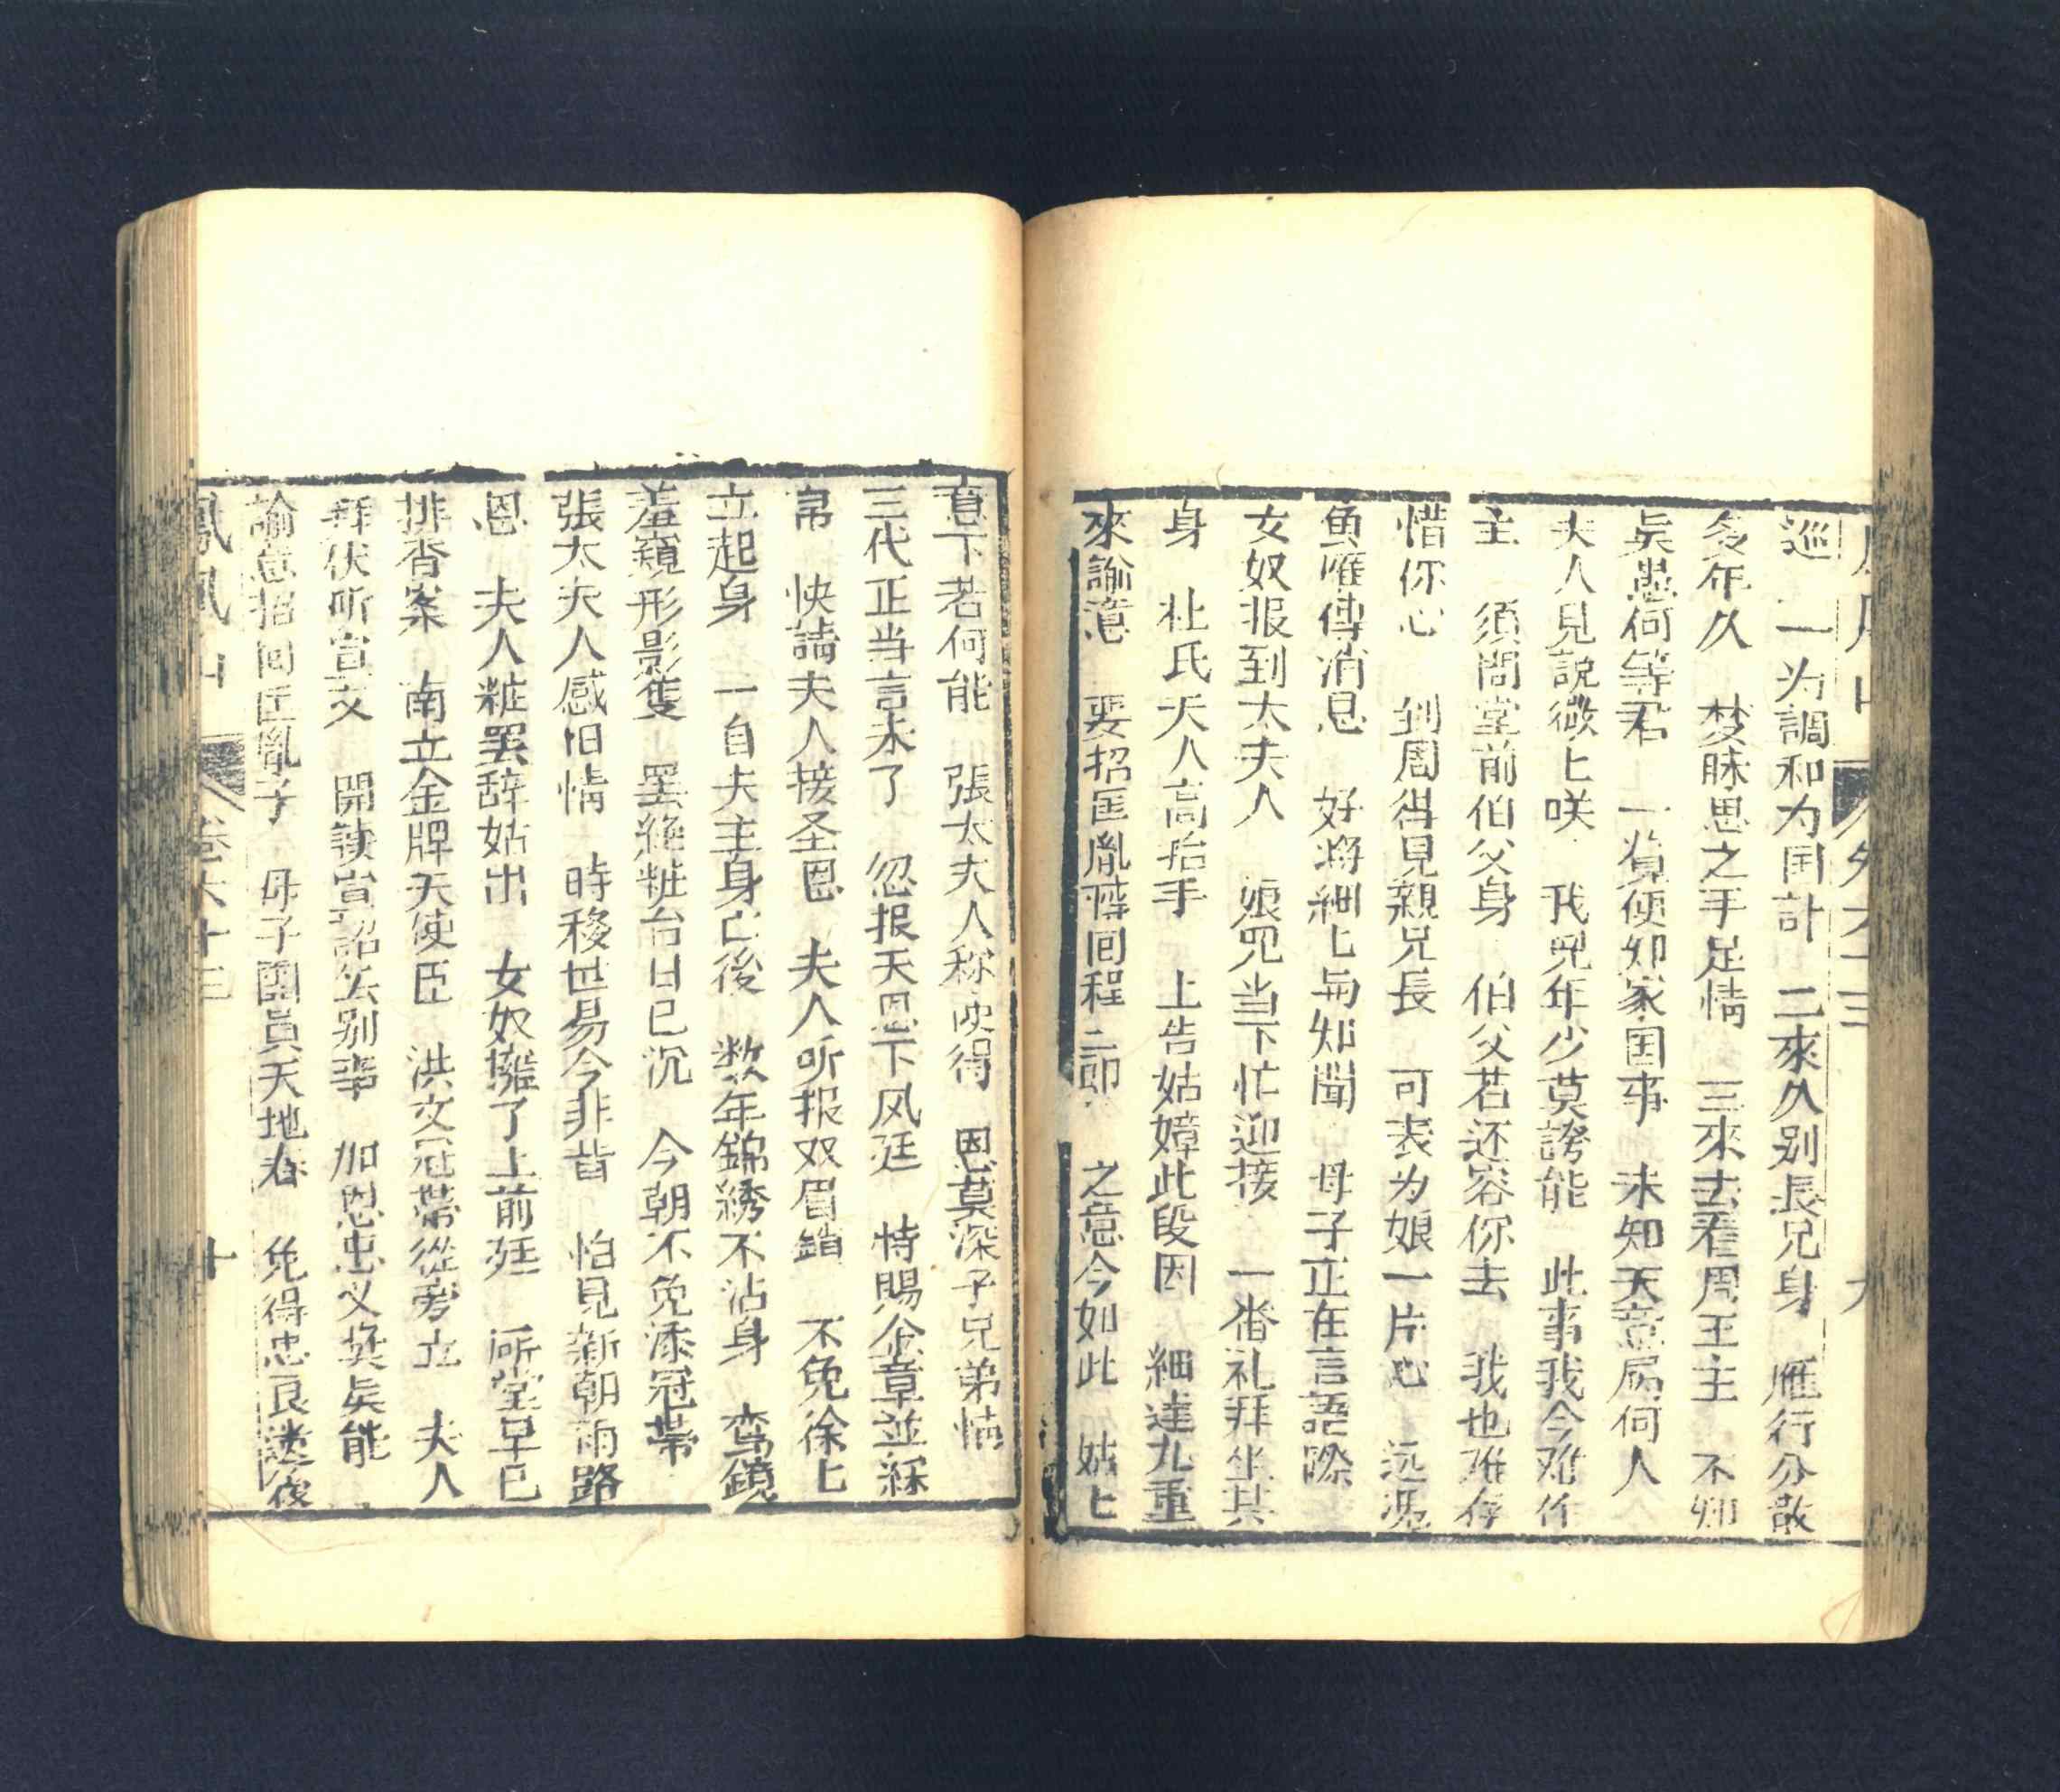 巡　一为調和为国計　二來久别長兄身　雁行分散
多年久　梦寐思之手足情　三來去看周王主　不卿
矣愚何等君　一筫便如家国事　未知天意屬何人
夫人見說微匕咲　我児年少莫誇能　此事我今难作
主　須問堂前伯父身　伯父若还容你去　我也难存
惜你心　到周得見親兄長　可表为娘一片心　远慿
魚雁傳消息　好将細匕与知聞　母子正在言語際
女奴报到太夫人　娘児当下忙迎接　一畨礼拜坐其
身　杜氏夫人高抬手　上告姑嫜此段因　細達九重
來諭意　要招匡胤轉囘程　之意今如此　姑匕
意下若何能　張太夫人称　得　恩莫深于兄弟情
三代正当言未了　忽报天恩下风廷　特賜金章並綵
帛　快請夫人接圣恩　夫人听报双眉鎖　不免徐匕
立起身　一自夫主身亡後　数年錦綉不沾身　鸾鏡
羞窺形影隻　罢繞粧台日已沉　今朝不免添冠帶
張太夫人感旧情　時移世易今非昔　怕見新朝雨路
恩　夫人粧罢辞姑出　女奴擁了上前廷　所堂早已
排香案　南立金牌天使臣　洪文冠帶從旁立　夫人
拜伏听宣文　開讀宣詔無别事　加恩忠义奨矣能
諭意招囘匡胤子　母子團員天地春　免得忠良迯後
鳳凰山　卷六十三　十